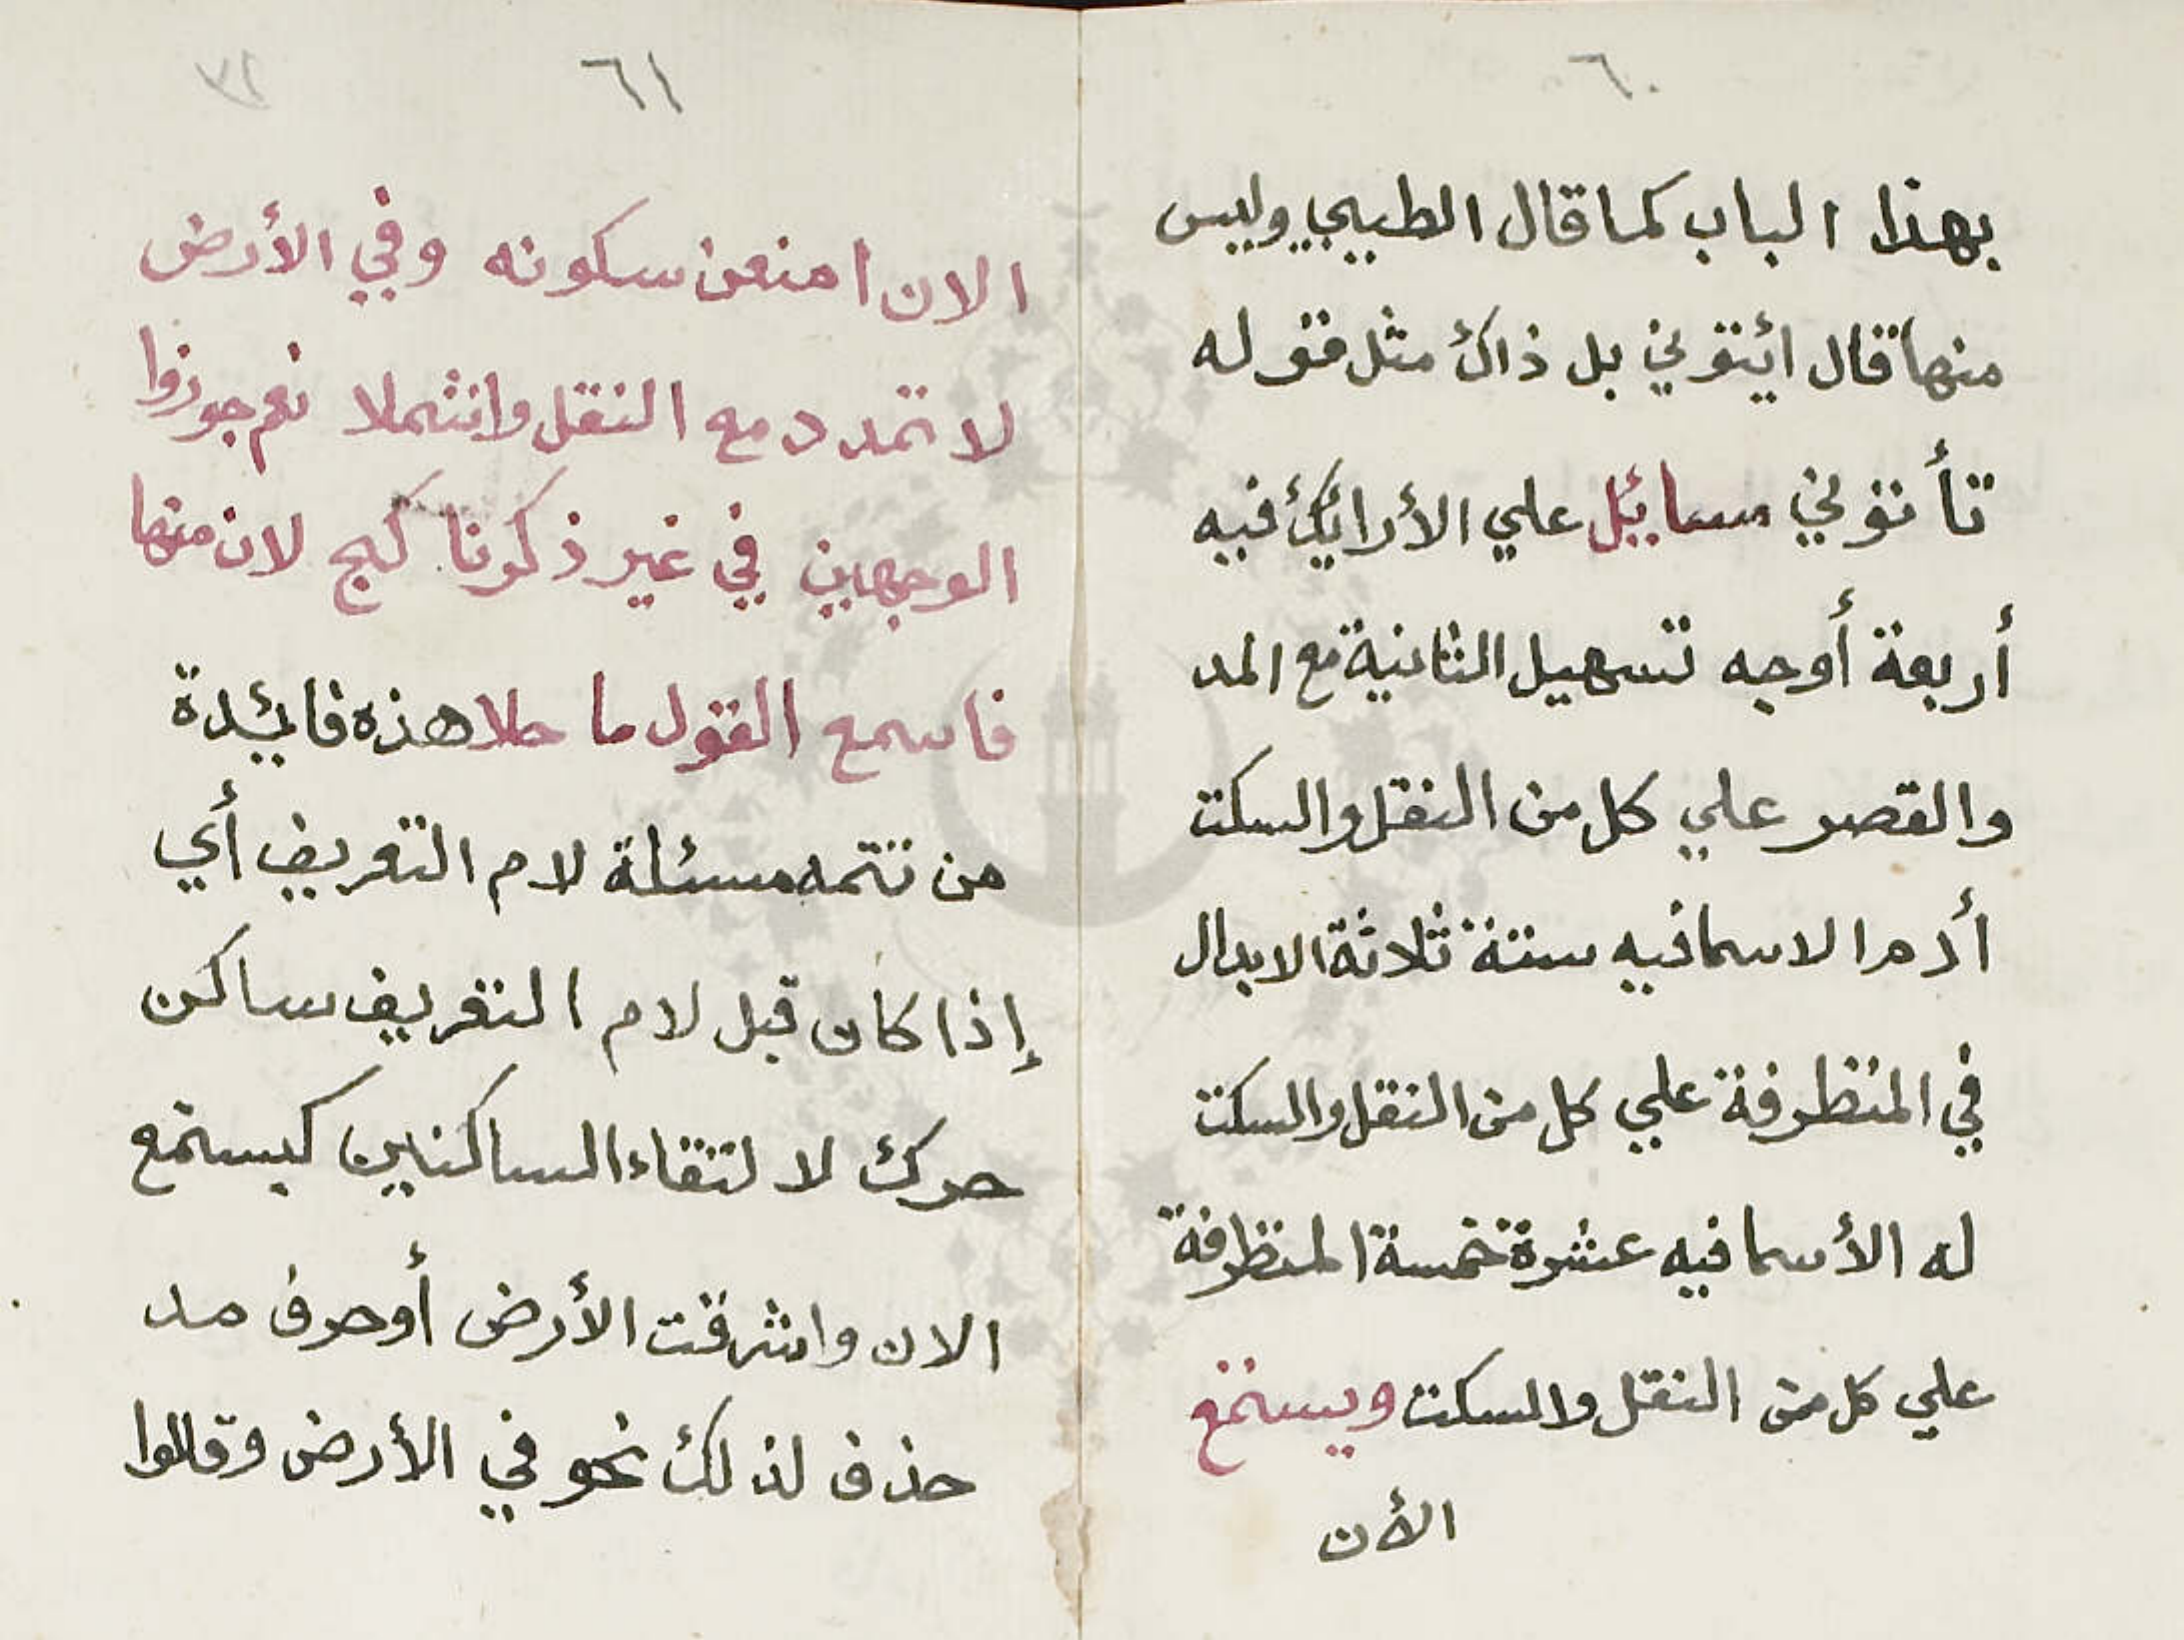 ٦٠
بهذا الباب كما قال الطيبي وليس
منها قال ائيتوني بل ذاك مثل قوله
تأتوني مسايئل علي الأرايئك فيه
أربعة أوجه تسهيل الثانية مع المد
والقصر علي كل من النقل والسكت
أدم الاسما فيه ستة ثلاثة الابدال
في المتطرفة علي كل من النقل والسكت
له الأسما فيه عشرة خمسة المتطرفة
علي كل من النقل والسكت ويستمع
الأن
٦١
٣١
الان امنعن سكونه وفي الأرض
لا تمدد مع النقل وانشملا نعم جوزوا
الوجهين في غير ذكونا كبج لان منها
فاسمع القول ما حلا هذه فايئدة
من تتمه مسئلة لام التعريف أي
إذا كان قبل لام التعريف ساكن
حرك لالتقاء الساكنين كيستمع
الان واشرقت الأرض أوحرف مد
حذف لذلك نحو في الأرض وقالوا